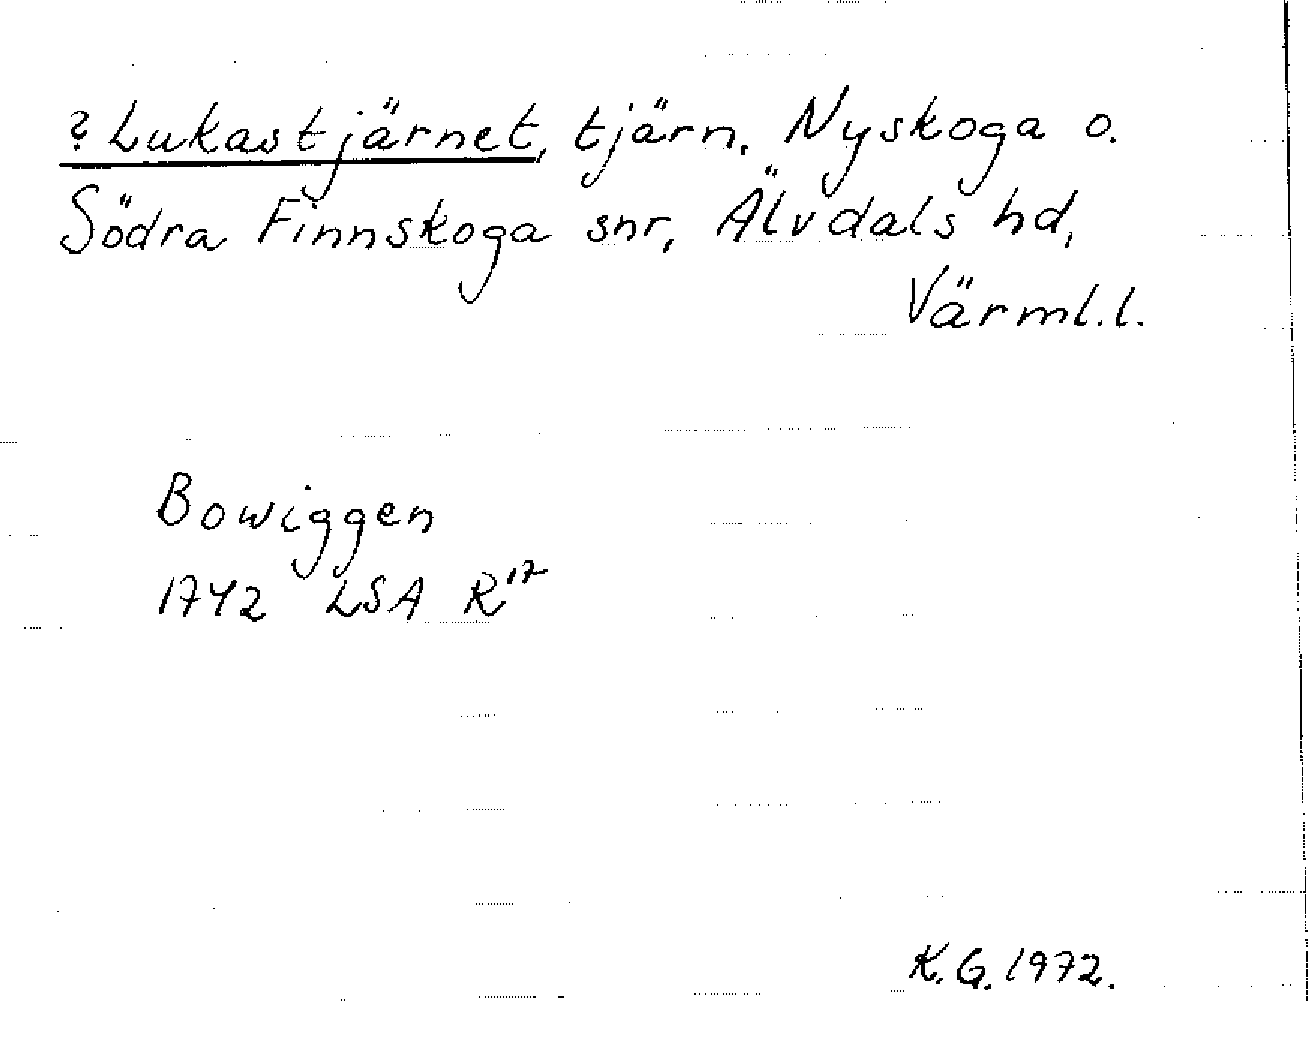 ? Lukastjärnet, tjärn, Nyskoga o.
Södra Finnskoga snr, Älvdals hd,
Värml.l.
Bowiggen
1742 LSA R17
K.G. 1972.